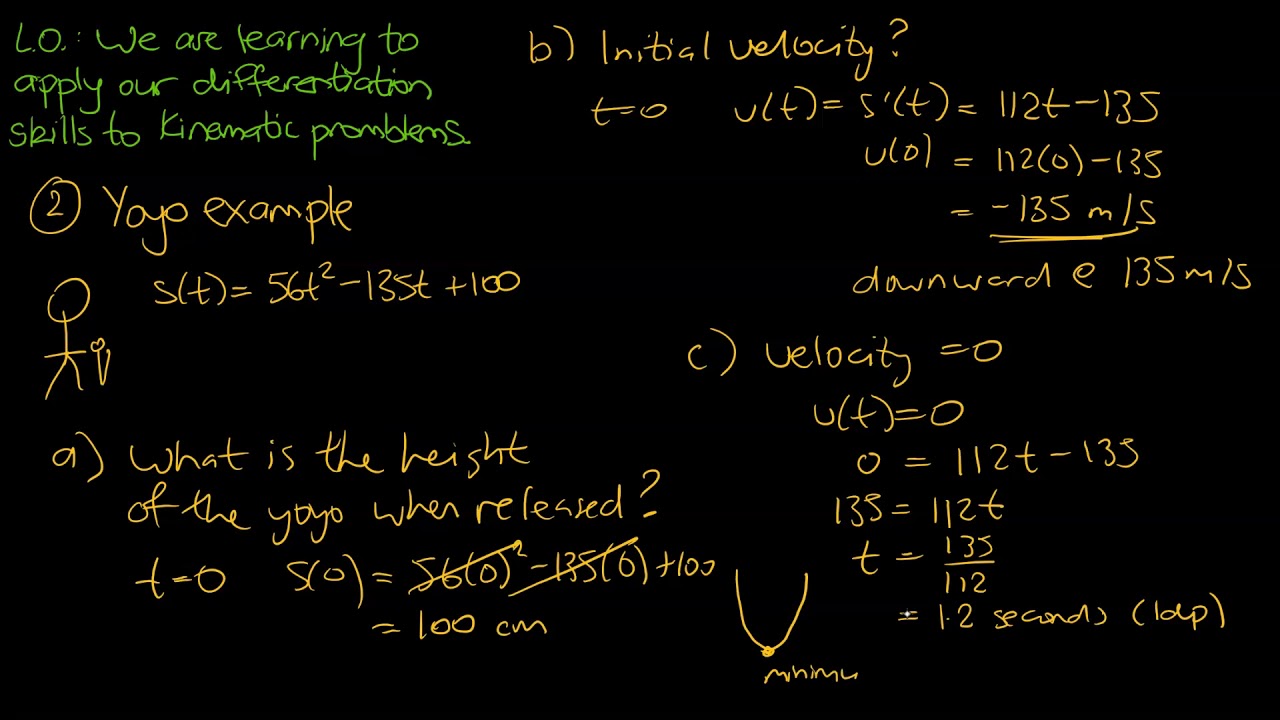 L.O.: We are learning to
apply our differentiation
skills to Kinematic promblems.
② Yoyo example
s(t) = 56t² - 135t + 100
a) What is the height
of the yoyo when released?
t=0 s(0) = 56(0)² - 135(0) + 100
= 100 cm
b) Initial velocity?
t=0 v(t) = s'(t) = 112t - 135
v(0) = 112(0) - 135
= -135 m/s
downward @ 135 m/s
c) velocity = 0
v(t) = 0
0 = 112t - 135
135 = 112t
t = 135/112
= 1.2 seconds (1dp)
minimu